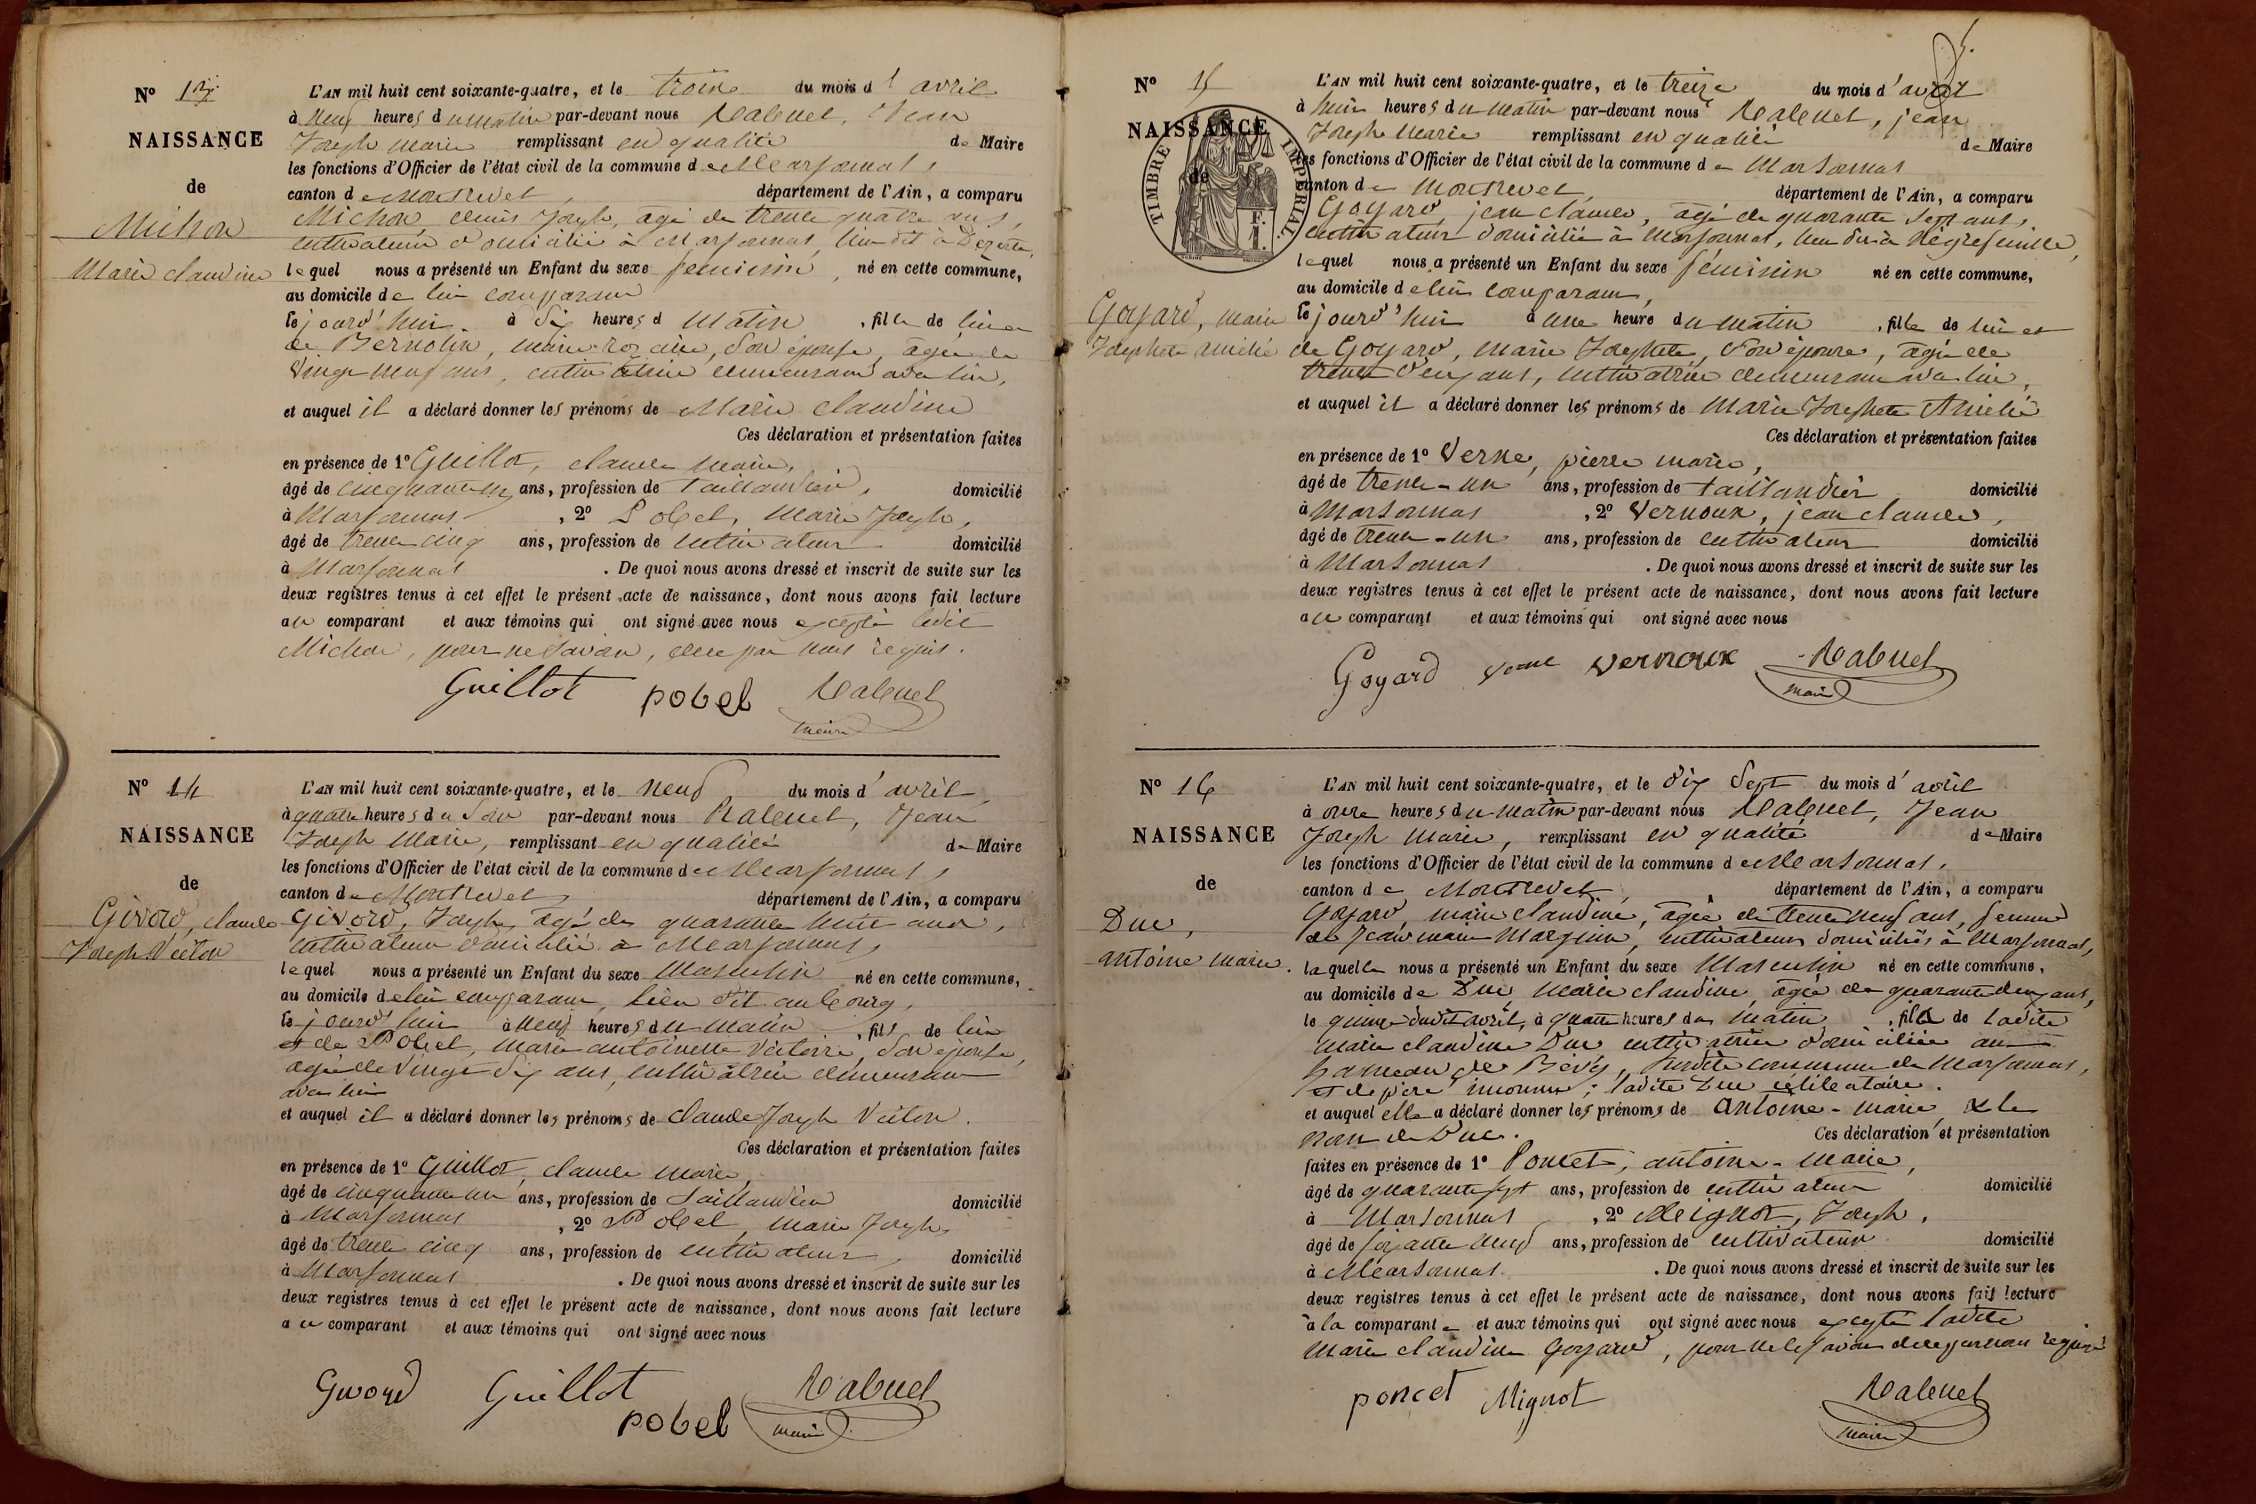 Nº 13
NAISSANCE
de
Michon
Marie claudine
L'AN mil huit cent soixante-quatre, et le trois du mois d'avril
à neuf heures du matin par-devant nous Rabuel, Jean
Joseph Marie remplissant en qualité de Maire
les fonctions d'Officier de l'état civil de la commune de Marsonnas,
canton de Montrevel, département de l'Ain, a comparu
Michon, Joseph, agé de trente quatre ans,
cultivateur domicilié à Marsonnas, lieu dit à
lequel nous a présenté un Enfant du sexe féminin, né en cette commune,
au domicile de lui comparant
le jourd'hui à six heures d matin, fille de lui et
de Bernolin, marie rozalie, son épouse, agée de
vingt neuf ans, cultivatrice demeurant avec lui,
et auquel il a déclaré donner les prénoms de Marie claudine
Ces déclaration et présentation faites
en présence de 1º Guillot, claude marie,
âgé de cinquante un ans, profession de taillandier, domicilié
à Marsonnas, 2º Pobel, Marie Joseph,
âgé de trente cinq ans, profession de cultivateur domicilié
à Marsonnas. De quoi nous avons dressé et inscrit de suite sur les
deux registres tenus à cet effet le présent acte de naissance, dont nous avons fait lecture
au comparant et aux témoins qui ont signé avec nous excepté ledit
Michon, pour ne savoir, de ce par nous requis.
Guillot pobel Rabuel
maire
Nº 14
NAISSANCE
de
Givord, claude
Joseph Victor
L'AN mil huit cent soixante-quatre, et le neuf du mois d'avril,
à quatre heures du soir par-devant nous Rabuel, Jean
Joseph Marie, remplissant en qualité de Maire
les fonctions d'Officier de l'état civil de la commune de Marsonnas,
canton de Montrevel, département de l'Ain, a comparu
Givord, Joseph, agé de quarante huit ans,
cultivateur domicilié à Marsonnas,
lequel nous a présenté un Enfant du sexe Masculin né en cette commune,
au domicile de lui comparant, lieu dit au bourg,
le jourd'hui à neuf heures du matin, fils de lui
et de Pobel, marie antoinette Victoire, son épouse,
agée de vingt six ans, cultivatrice demeurant
avec lui
et auquel il a déclaré donner les prénoms de claude Joseph Victor.
Ces déclaration et présentation faites
en présence de 1º Guillot, claude marie,
âgé de cinquante un ans, profession de taillandier domicilié
à Marsonnas, 2º Pobel, marie Joseph,
âgé de trente cinq ans, profession de cultivateur, domicilié
à Marsonnas. De quoi nous avons dressé et inscrit de suite sur les
deux registres tenus à cet effet le présent acte de naissance, dont nous avons fait lecture
au comparant et aux témoins qui ont signé avec nous
Givord Guillot Rabuel
pobel maire
5.
Nº 15
NAISSANCE
de
TIMBRE IMPÉRIAL.
F.
Goyard, marie
Josephete amélie
L'AN mil huit cent soixante-quatre, et le treize du mois d'avril
à huit heures du matin par-devant nous Rabuel, jean
Joseph Marie remplissant en qualité de Maire
les fonctions d'Officier de l'état civil de la commune de Marsonnas
canton de Montrevel, département de l'Ain, a comparu
Goyard, jean claude, âgé de quarante sept ans,
cultivateur domicilié à Marsonnas, lieu dit à Négrefeuille,
lequel nous a présenté un Enfant du sexe féminin né en cette commune,
au domicile de lui comparant,
le jourd'hui à une heure du matin, fille de lui et
de Goyard, Marie Josephete, son épouse, agée de
trente deux ans, cultivatrice demeurant avec lui,
et auquel il a déclaré donner les prénoms de Marie Josephete Amélie
Ces déclaration et présentation faites
en présence de 1º Verne, pierre marie,
âgé de trente-un ans, profession de taillandier domicilié
à Marsonnas, 2º Vernoux, jean claude,
âgé de trente-un ans, profession de cultivateur domicilié
à Marsonnas. De quoi nous avons dressé et inscrit de suite sur les
deux registres tenus à cet effet le présent acte de naissance, dont nous avons fait lecture
au comparant et aux témoins qui ont signé avec nous
Goyard verne vernoux Rabuel
maire
Nº 16
NAISSANCE
de
Duc,
antoine marie.
L'AN mil huit cent soixante-quatre, et le dix sept du mois d'avril
à onze heures du matin par-devant nous Rabuel, Jean
Joseph Marie, remplissant en qualité de Maire
les fonctions d'Officier de l'état civil de la commune de Marsonnas,
canton de Montrevel, département de l'Ain, a comparu
Goyard, marie claudine, agée de trente neuf ans, femme
de Jean marie Marguin, cultivateurs domiciliés à Marsonnas,
laquelle nous a présenté un Enfant du sexe Masculin né en cette commune,
au domicile de Duc, Marie claudine, agée de quarante deux ans,
le quinze dudit avril, à quatre heures du matin, fils de ladite
Marie claudine Duc cultivatrice domiciliée au
hameau de Bévy, susdite commune de Marsonnas,
et de père inconnu; ladite Duc célibataire.
et auquel elle a déclaré donner les prénoms de Antoine-marie & le
nom de Duc. Ces déclaration et présentation
faites en présence de 1º Poncet, antoine-marie,
âgé de quarante sept ans, profession de cultivateur domicilié
à Marsonnas, 2º Mignot, Joseph,
âgé de soixante neuf ans, profession de cultivateur domicilié
à Marsonnas. De quoi nous avons dressé et inscrit de suite sur les
deux registres tenus à cet effet le présent acte de naissance, dont nous avons fait lecture
à la comparante et aux témoins qui ont signé avec nous excepté ladite
Marie claudine Goyard, pour ne le savoir de ce par nous requise
poncet Mignot Rabuel
maire